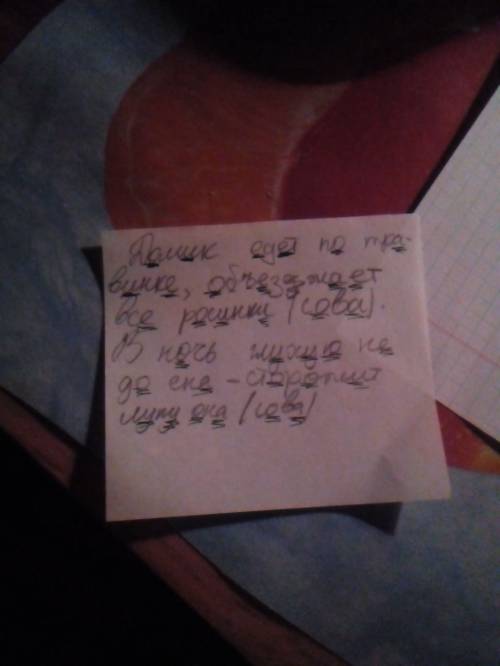 Домик едет по тра-
винке, объезжает
все росинки (сова).
В ночь глухую не
до сна - сторожит
луну она (сова)